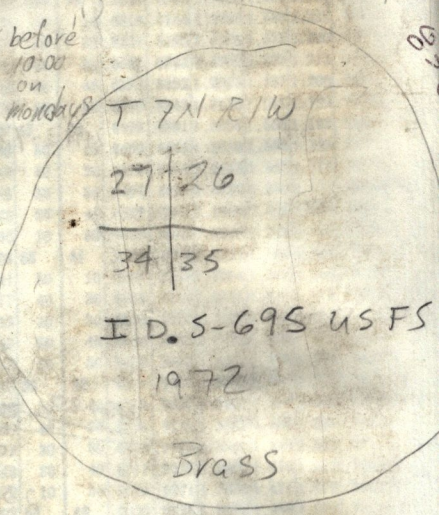 before
10:00
on
mondays
T 7N R1W
27 26
34 35
I D. S-695 USFS
1972
Brass